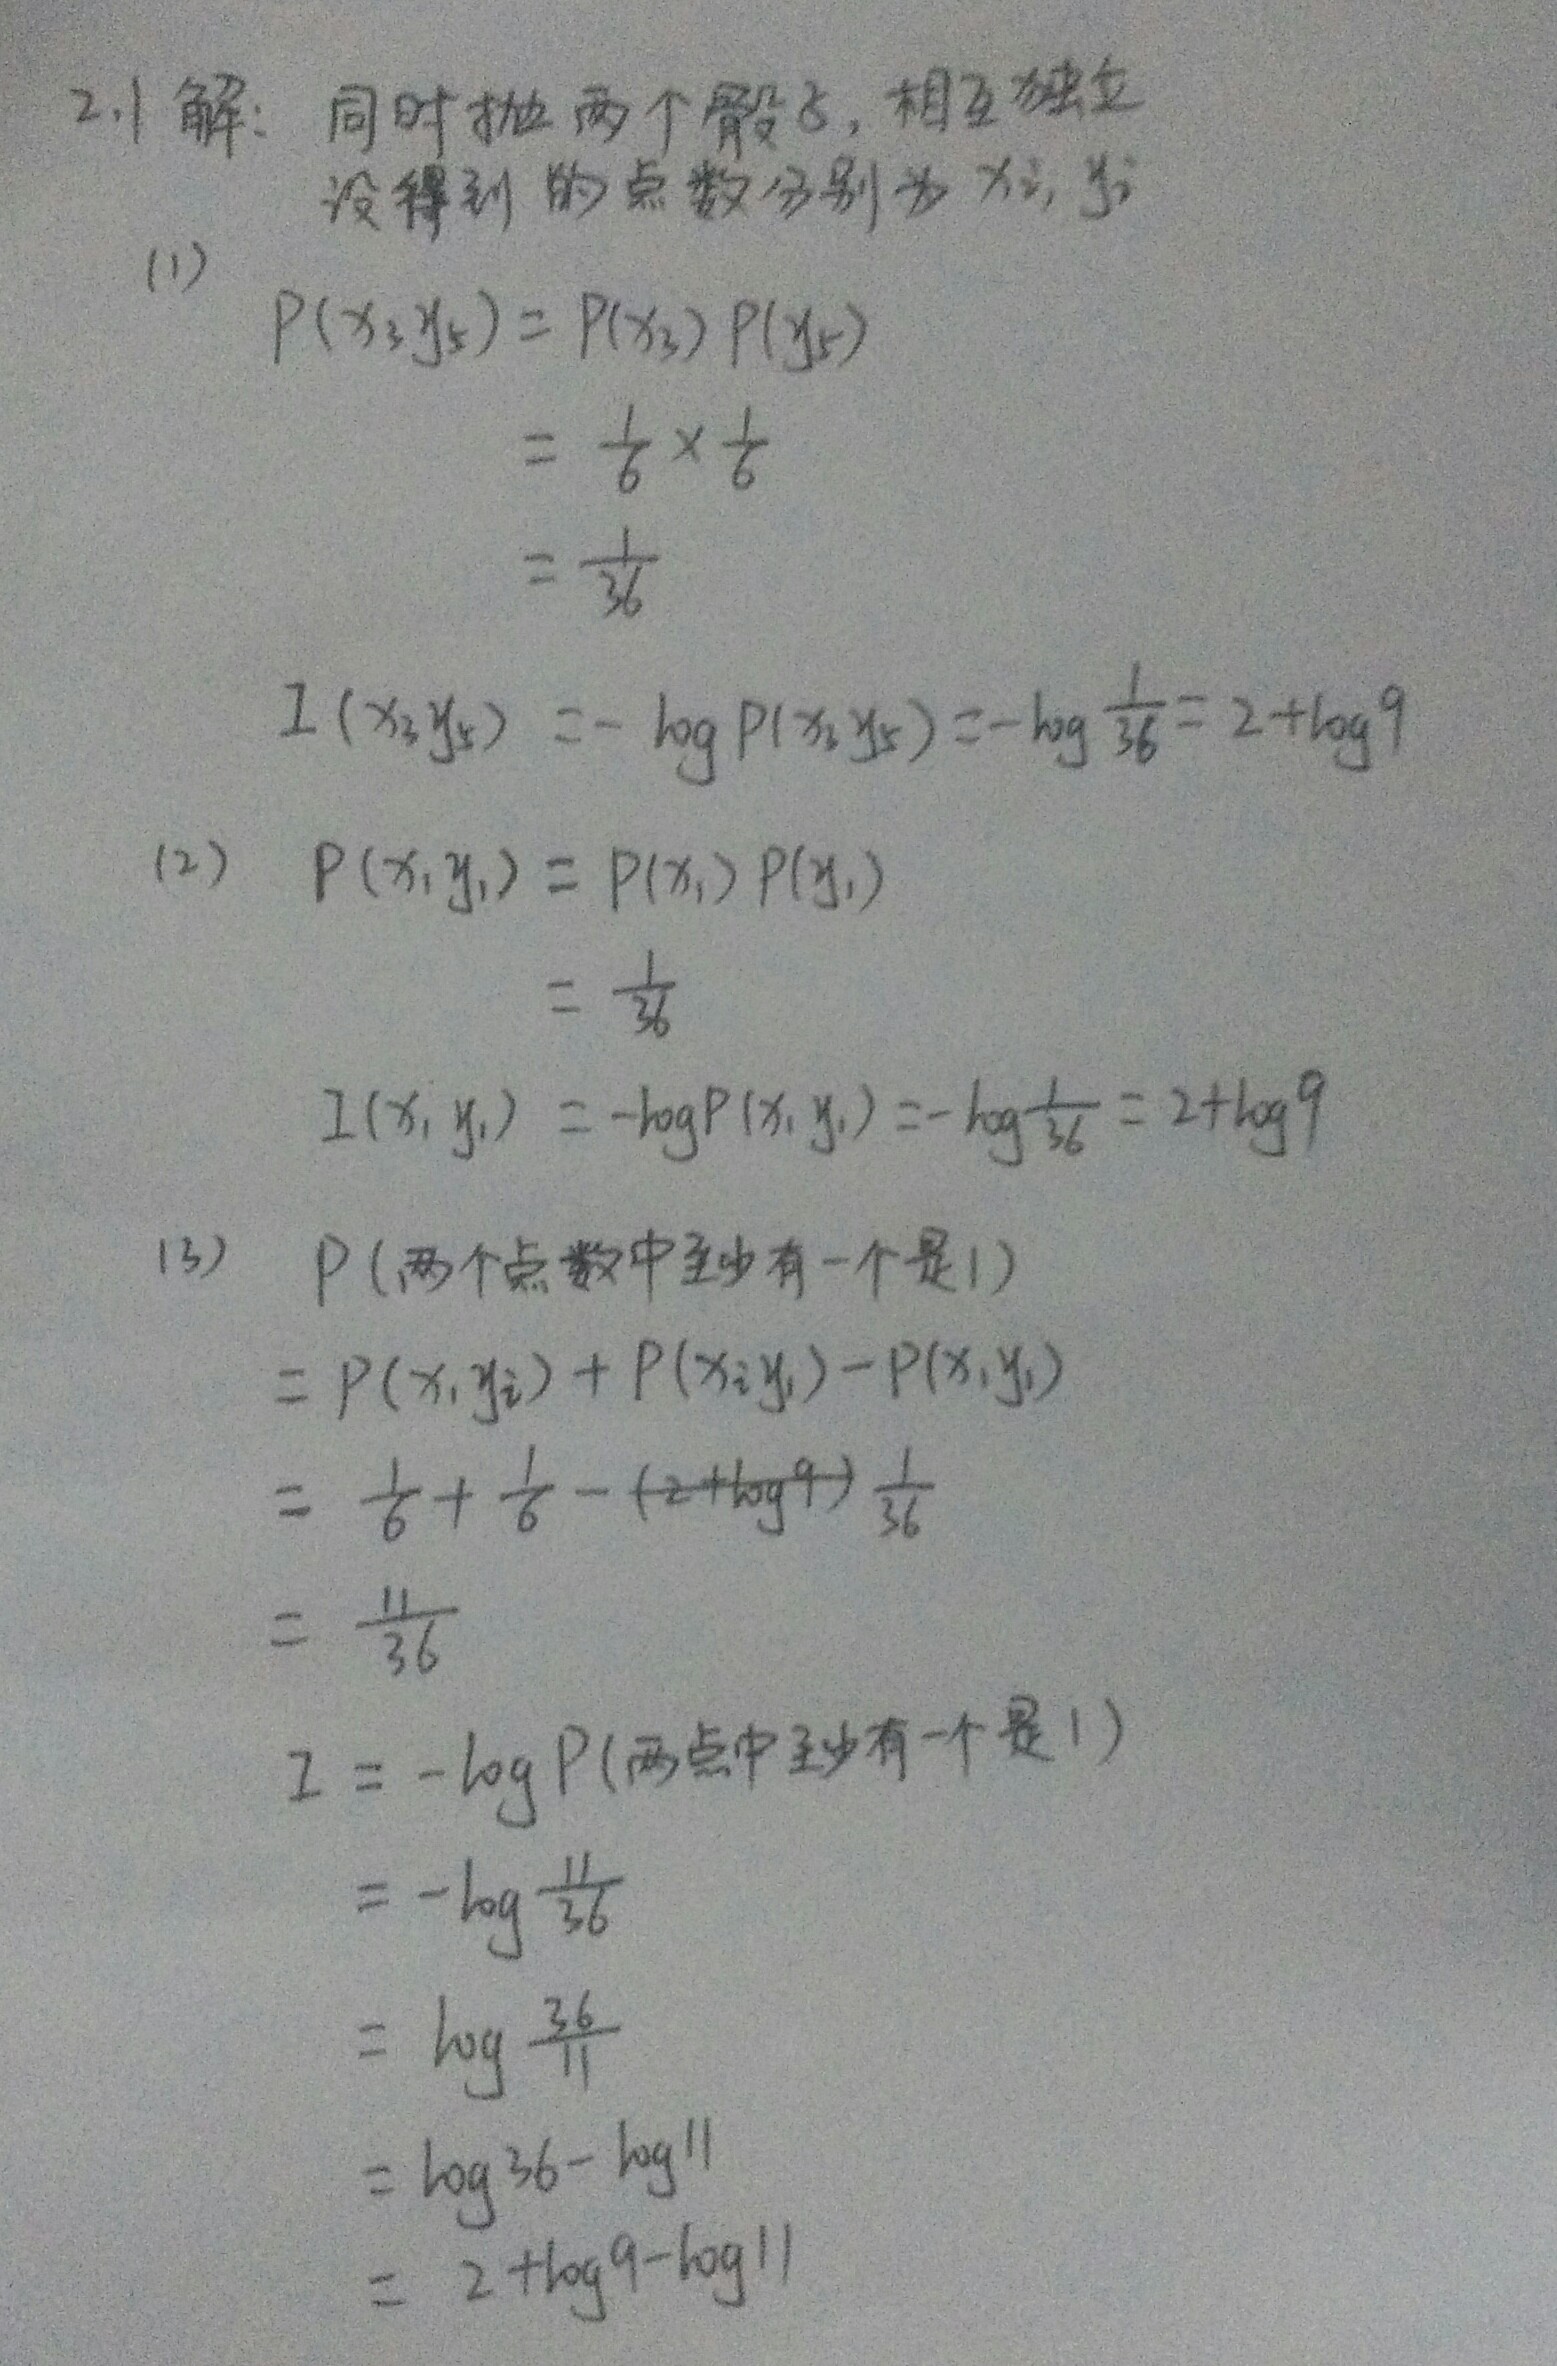 2.1 解: 同时抛两个骰子, 相互独立
设得到的点数分别为 xi, yi
(1)
P(x₃y₅) = P(x₃) P(y₅)
= 1/6 × 1/6
= 1/36
I(x₃y₅) = - log P(x₃y₅) = -log 1/36 = 2+log9
(2) P(x₁y₁) = P(x₁) P(y₁)
= 1/36
I(x₁y₁) = -logP(x₁y₁) = -log 1/36 = 2+log9
(3) P(两个点数中至少有一个是1)
= P(x₁yi) + P(xiy₁) - P(x₁y₁)
= 1/6 + 1/6 - (2+log9) 1/36
= 11/36
I = -log P(两点中至少有一个是1)
= -log 11/36
= log 36/11
= log36 - log11
= 2+log9-log11